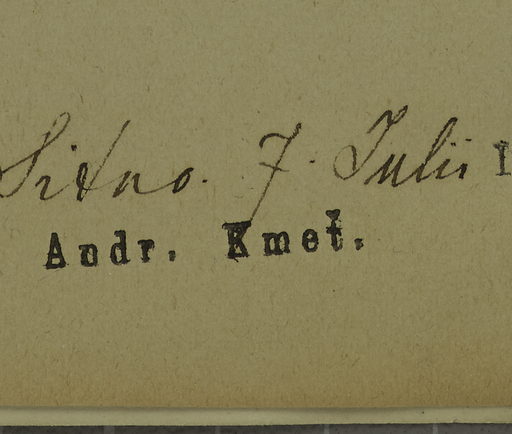 Sitno. 7. Julii 1
Andr. Kmeť.